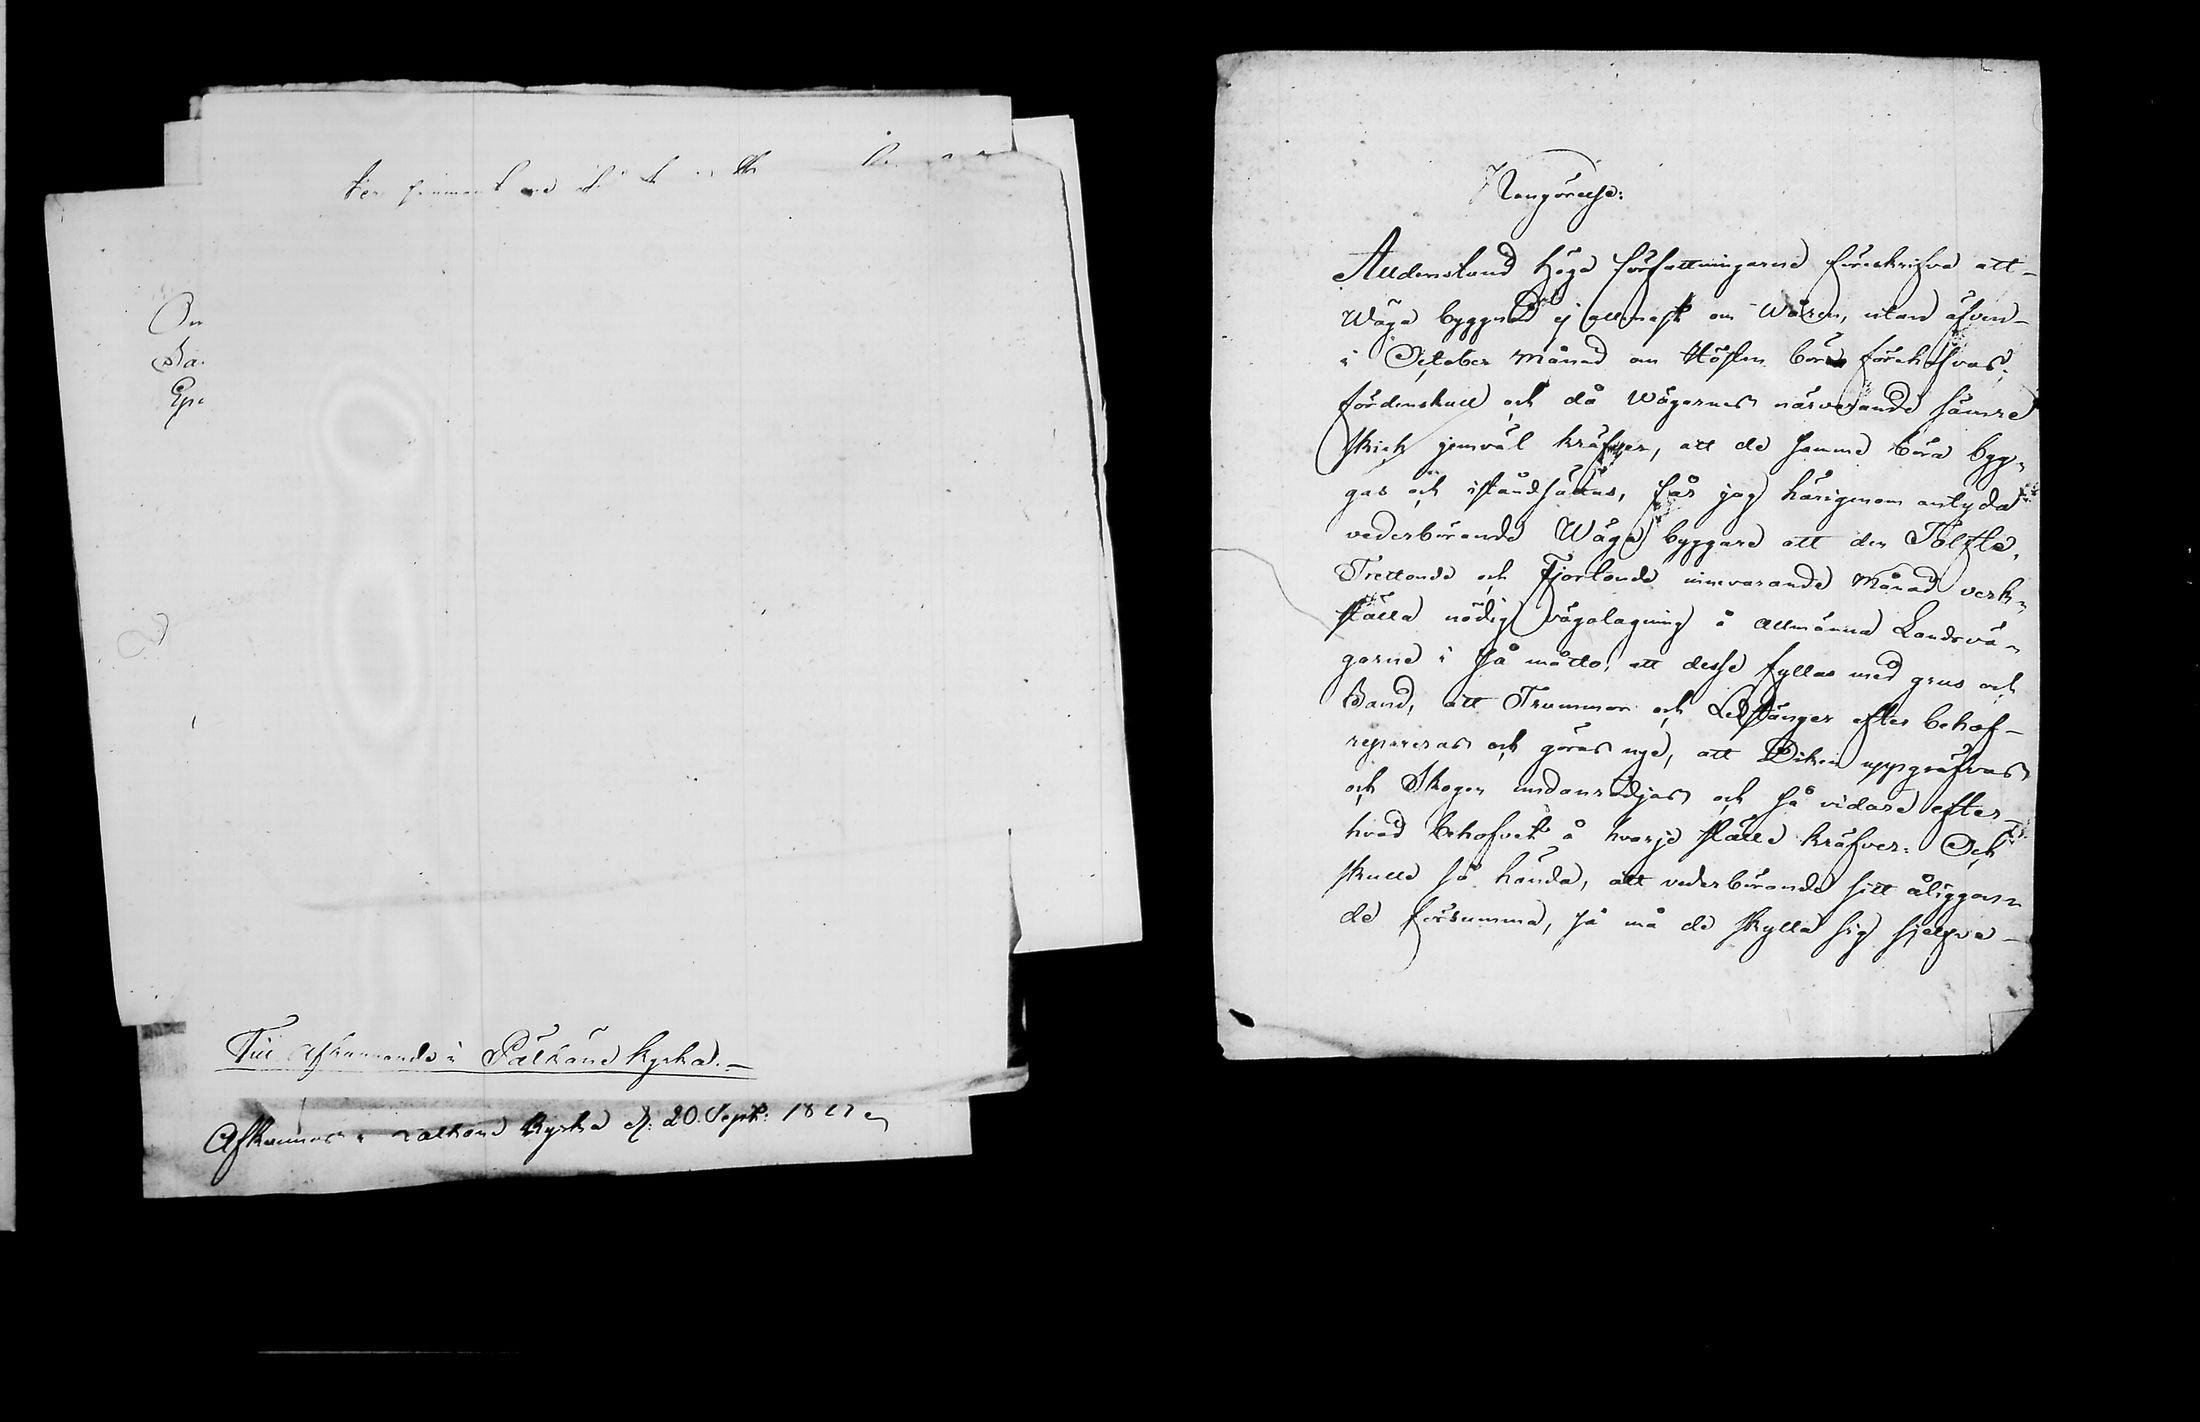 On
Sa
Till Afkunnande i Pälkäne kyrka.–
Afkunnas i Pälkäne kyrka d. 20. Sept:
Kungörelse:
Alldenstund höga författningarne föreskrifva att
Wäga byggnad ej allenast om Våren, utan äfven
i October Månad om Hösten böra förehafvas;
fördenskull och då Wägarnes närvarande sämre
skick jemväl kräfver, att de samma böra byg-
gas och iståndsättas, får jag härigenom antyda
vederbörande Wäga byggare att den Tolfte,
Trettonde och Fjortonde innevarande Månad verk-
ställa nödig vägalagning å allmänna Landsvä-
garne i så måtto, att desse fyllas med grus och
Sand, att Trummor och Ledstänger efter behof
repareras och göras nye, att Diken uppgräfvas
och Skogen undanrödjas och så vidare efter
hvad behofvet å hvarje ställe kräfver: Och
skulle så hända, att vederbörande sitt åliggan-
de försumma, så må de skylla sig sjelfva